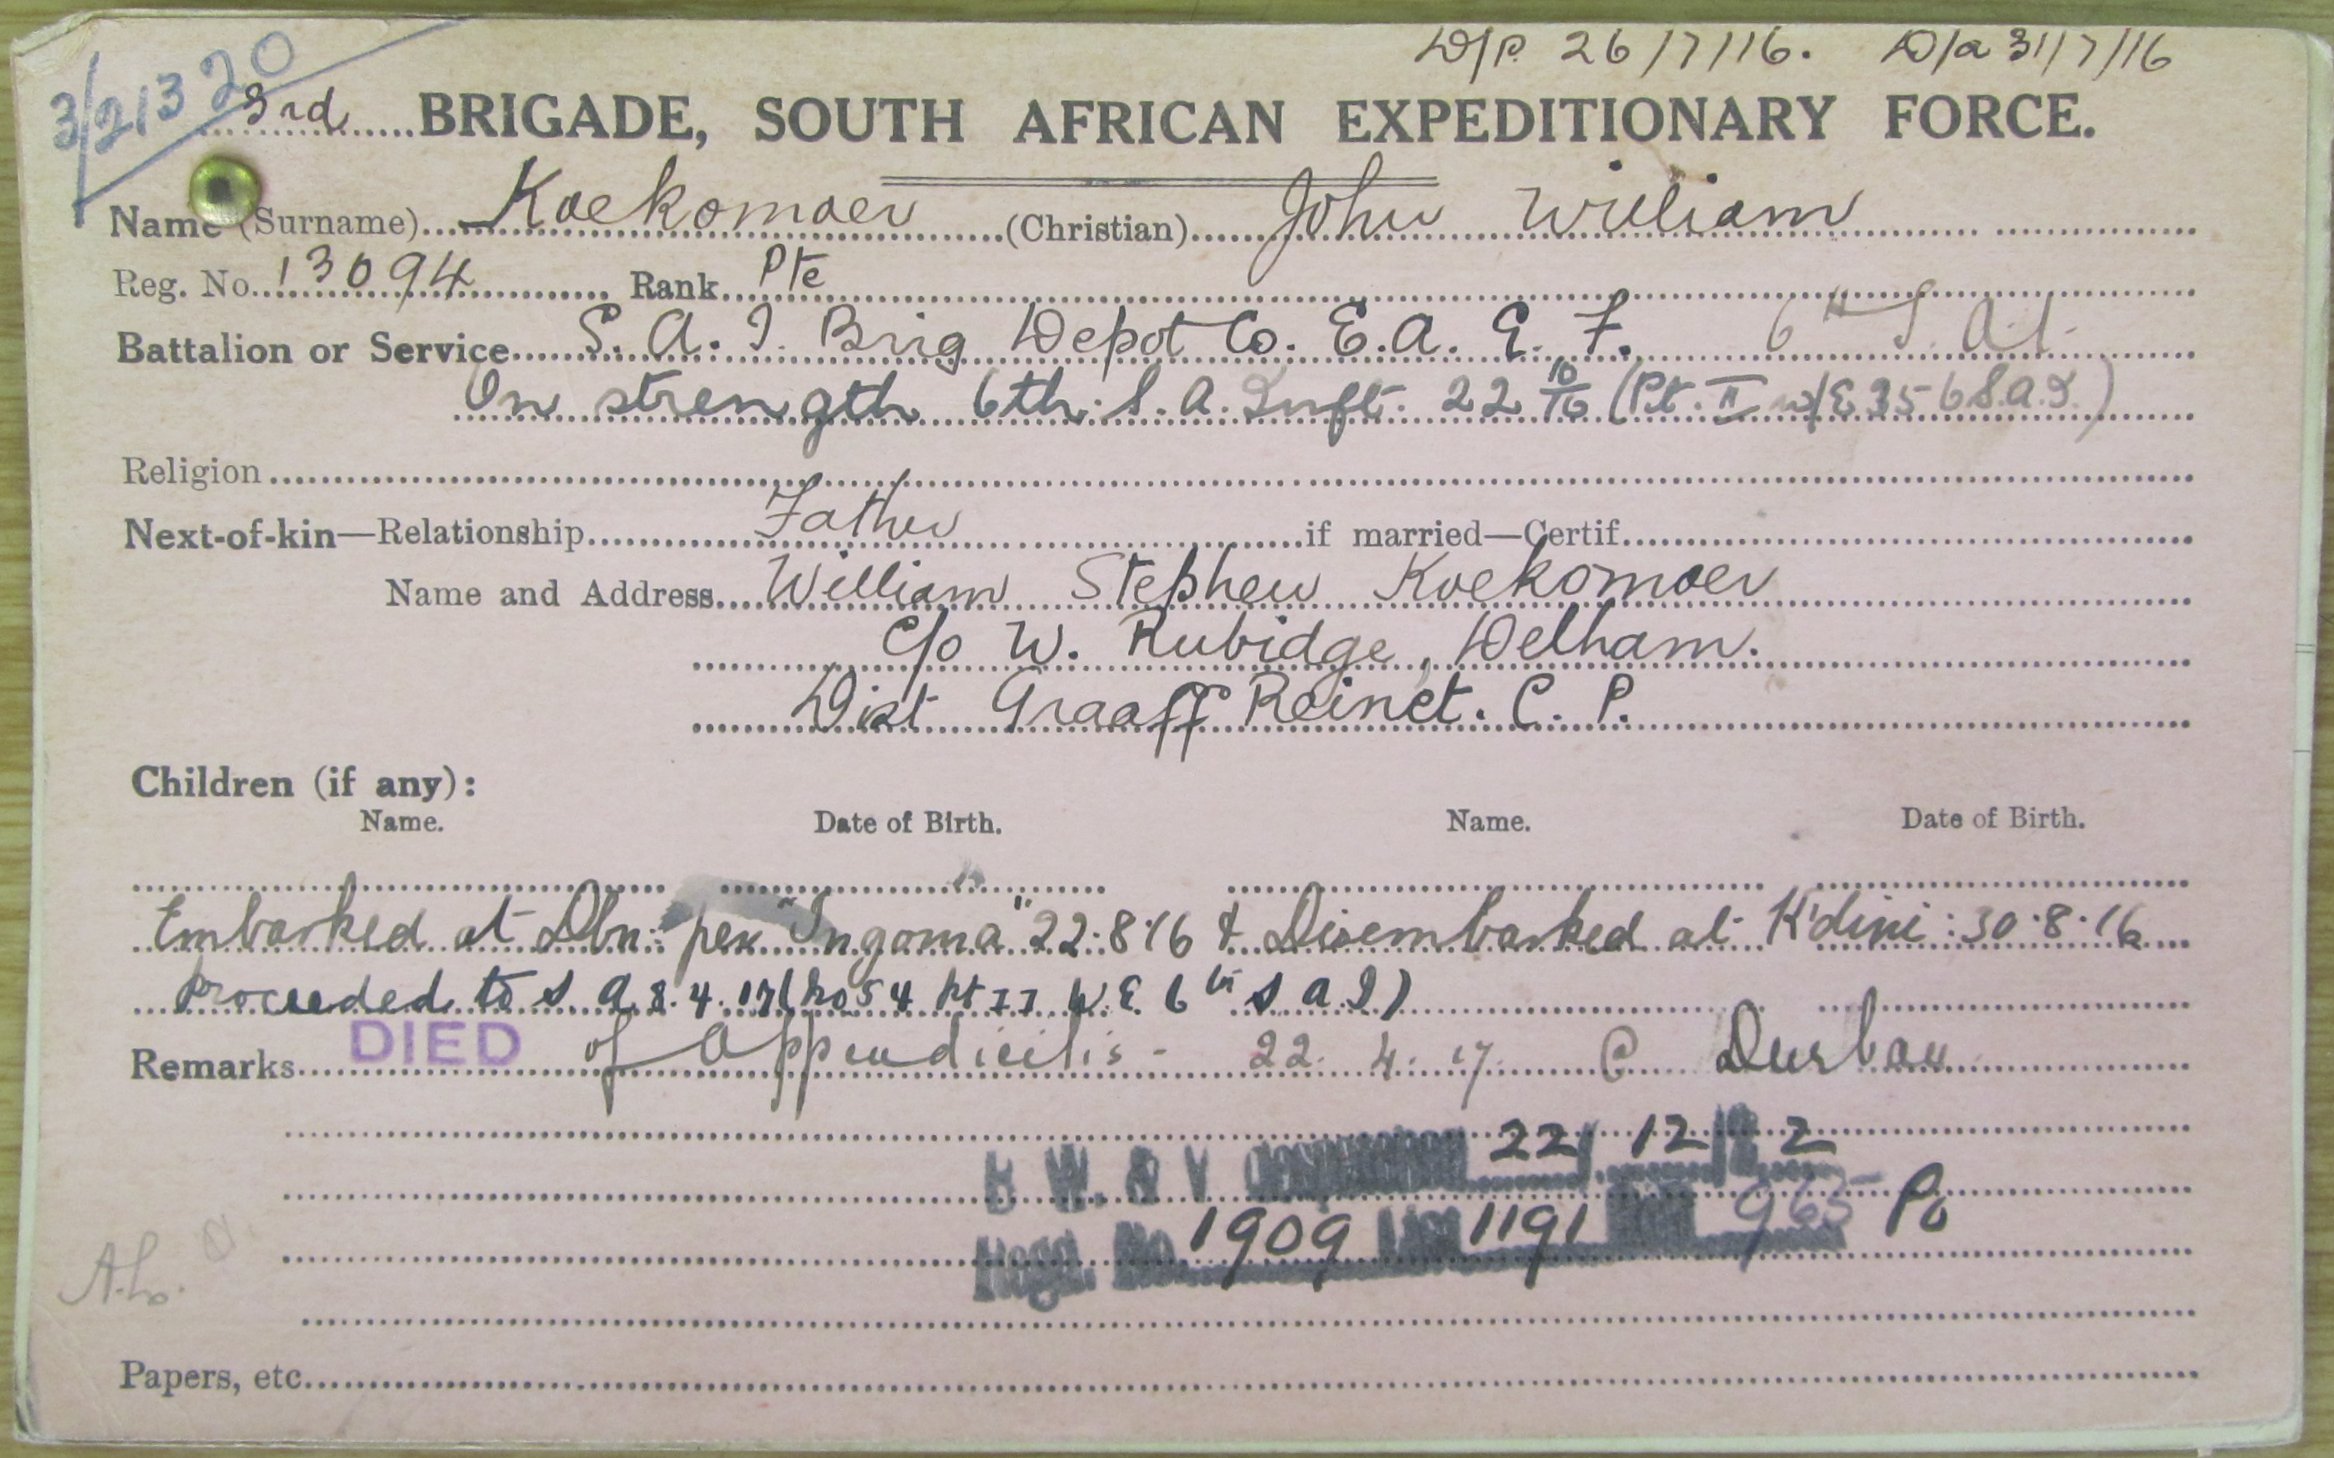 D/P. 26/7/16. D/a 31/7/16
3/21320
3rd BRIGADE, SOUTH AFRICAN EXPEDITIONARY FORCE.
Name (Surname) Koekomoer (Christian) John William
Reg. No. 13094 Rank Pte
Battalion or Service S. A. I. Brig Depot Co. E. A. E. F. 6th S A.I.
On strength 6th. S. A. Inft. 22 10/16 (Pt. II W/E 35 6 S.A.I.)
Religion
Next-of-kin—Relationship Father if married—Certif.
Name and Address William Stephen Koekomoer
c/o W. Rubidge, Welham.
Dist Graaff Reinet. C. P.
Children (if any):
Name. Date of Birth. Name. Date of Birth.
Embarked at Dbn: per "Ingoma" 22.8.16 & Disembarked at K'dini: 30.8.16
Proceeded to S A 8.4.17 (No 54 pt II W.E 6th S A I)
Remarks DIED of Appendicitis - 22. 4. 17. @ Durban
B W. & V 22/12/ 2
Regd. No. 1909 1191 965 Po
Papers, etc.